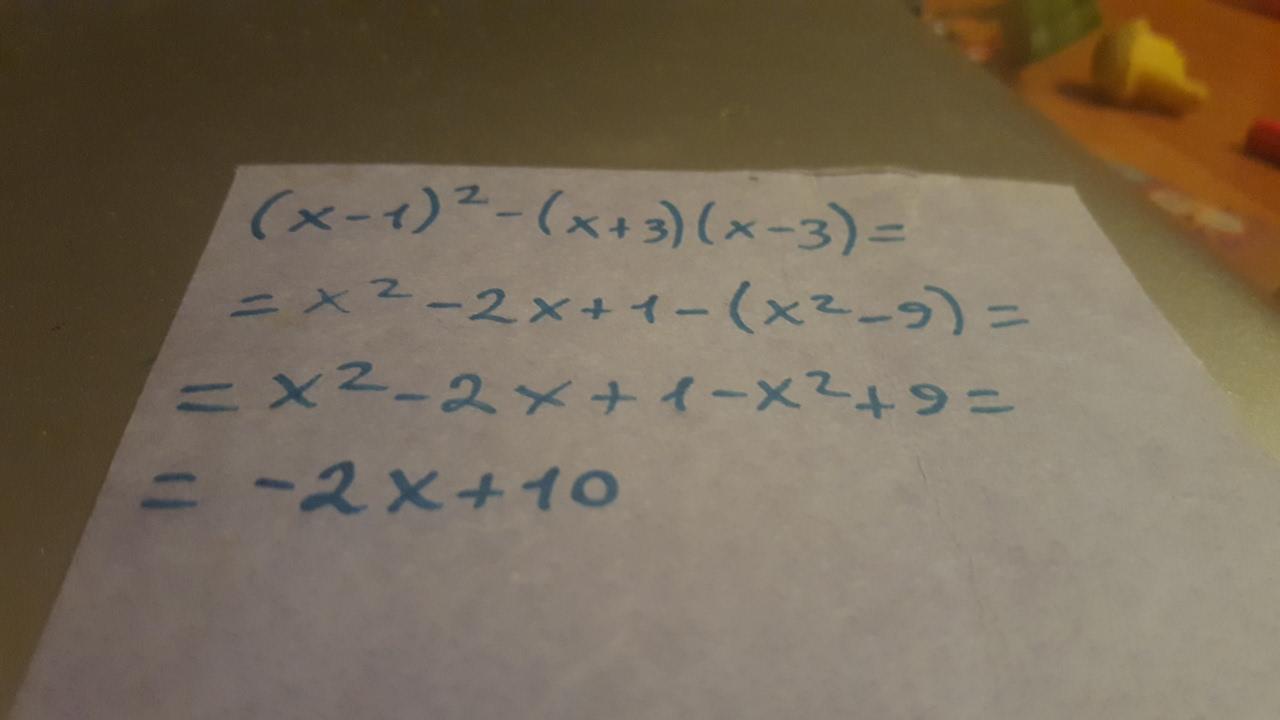 (x-1)²-(x+3)(x-3)=
=x²-2x+1-(x²-9)=
=x²-2x+1-x²+9=
=-2x+10